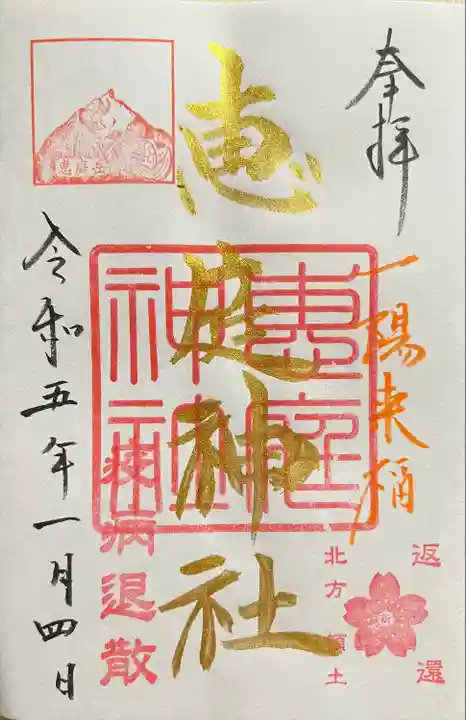 奉拝
一陽来福
返還
北方領土
恵庭神社
惠庭
神社
恵庭岳
疫病退散
令和五年一月四日